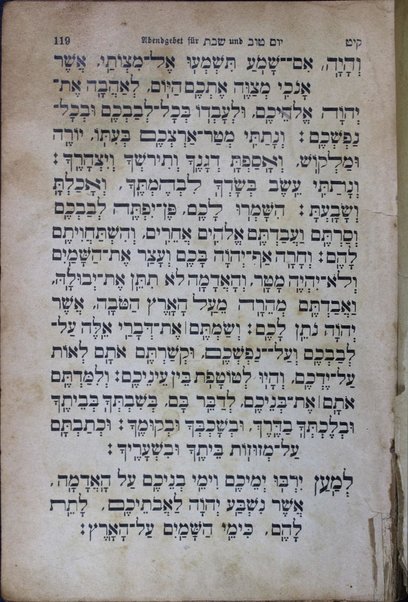 119 Abendgebet für שבת und יום טוב קיט
וְהָיָה, אִם־שָׁמֹעַ תִּשְׁמְעוּ אֶל־מִצְוֹתַי, אֲשֶׁר
אָנֹכִי מְצַוֶּה אֶתְכֶם הַיּוֹם, לְאַהֲבָה אֶת־
יְהֹוָה אֱלֹהֵיכֶם, וּלְעָבְדוֹ בְּכָל־לְבַבְכֶם וּבְכָל־
נַפְשְׁכֶם: וְנָתַתִּי מְטַר־אַרְצְכֶם בְּעִתּוֹ, יוֹרֶה
וּמַלְקוֹשׁ, וְאָסַפְתָּ דְגָנֶךָ וְתִירֹשְׁךָ וְיִצְהָרֶךָ:
וְנָתַתִּי עֵשֶׂב בְּשָׂדְךָ לִבְהֶמְתֶּךָ, וְאָכַלְתָּ
וְשָׂבָעְתָּ: הִשָּׁמְרוּ לָכֶם, פֶּן־יִפְתֶּה לְבַבְכֶם
וְסַרְתֶּם וַעֲבַדְתֶּם אֱלֹהִים אֲחֵרִים, וְהִשְׁתַּחֲוִיתֶם
לָהֶם: וְחָרָה אַף־יְהֹוָה בָּכֶם וְעָצַר אֶת־הַשָּׁמַיִם
וְלֹא־יִהְיֶה מָטָר, וְהָאֲדָמָה לֹא תִתֵּן אֶת־יְבוּלָהּ,
וַאֲבַדְתֶּם מְהֵרָה מֵעַל הָאָרֶץ הַטֹּבָה, אֲשֶׁר
יְהֹוָה נֹתֵן לָכֶם: וְשַׂמְתֶּם׀ אֶת־דְּבָרַי אֵלֶּה עַל־
לְבַבְכֶם וְעַל־נַפְשְׁכֶם, וּקְשַׁרְתֶּם אֹתָם לְאוֹת
עַל־יֶדְכֶם, וְהָיוּ לְטוֹטָפֹת בֵּין עֵינֵיכֶם: וְלִמַּדְתֶּם
אֹתָם׀ אֶת־בְּנֵיכֶם, לְדַבֵּר בָּם, בְּשִׁבְתְּךָ בְּבֵיתֶךָ
וּבְלֶכְתְּךָ בַדֶּרֶךְ, וּבְשָׁכְבְּךָ וּבְקוּמֶךָ: וּכְתַבְתָּם
עַל־מְזוּזוֹת בֵּיתֶךָ וּבִשְׁעָרֶיךָ:
לְמַעַן יִרְבּוּ יְמֵיכֶם וִימֵי בְנֵיכֶם עַל הָאֲדָמָה,
אֲשֶׁר נִשְׁבַּע יְהֹוָה לַאֲבֹתֵיכֶם, לָתֵת
לָהֶם, כִּימֵי הַשָּׁמַיִם עַל־הָאָרֶץ: